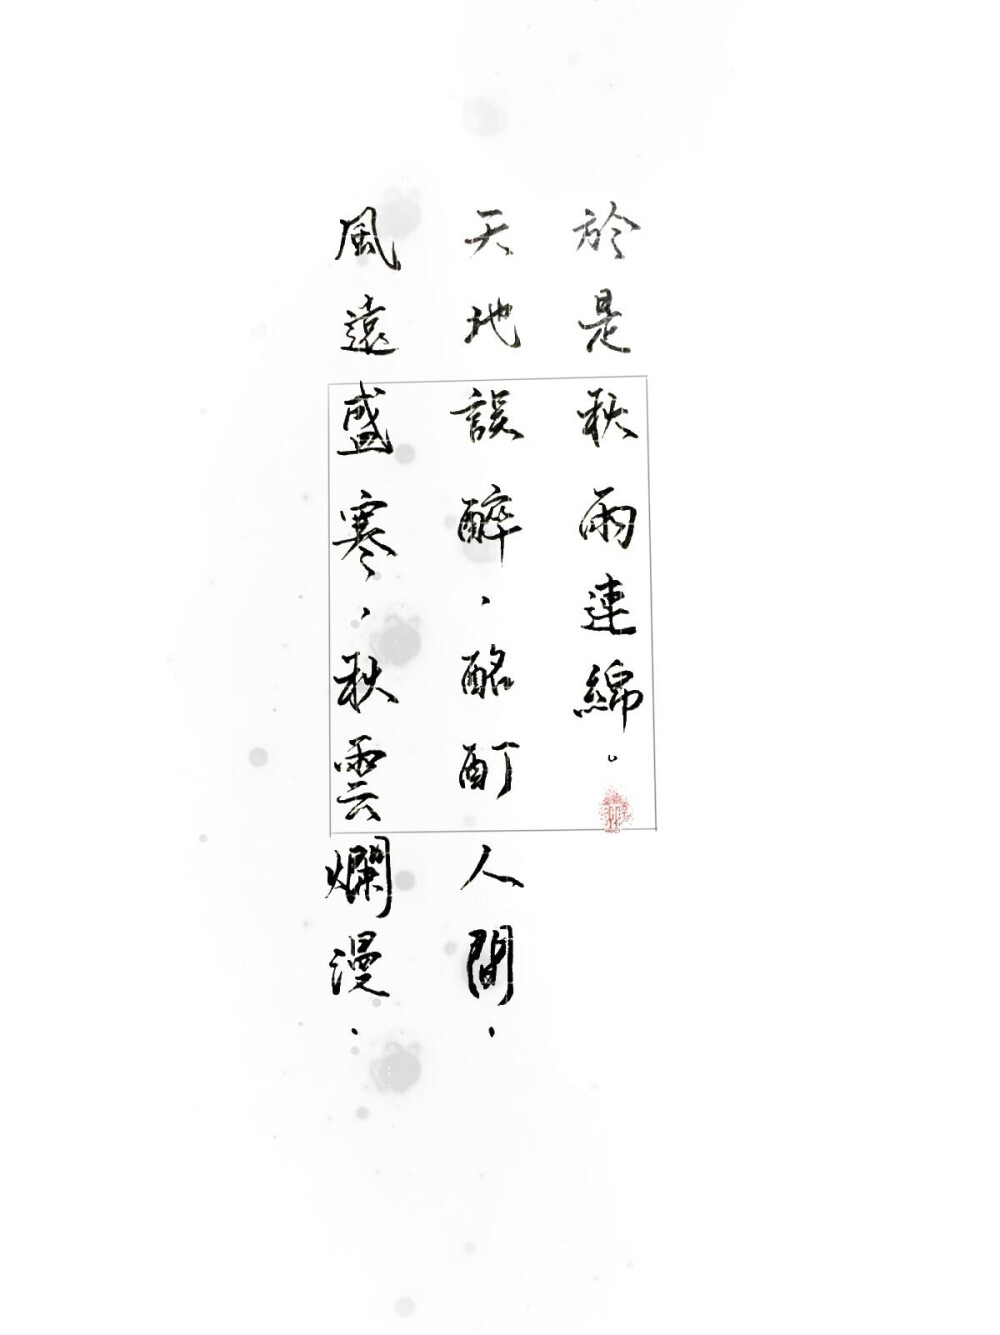 風遠盛寒，秋雲爛漫，
天地誤醉，酩酊人間，
於是秋雨連綿。